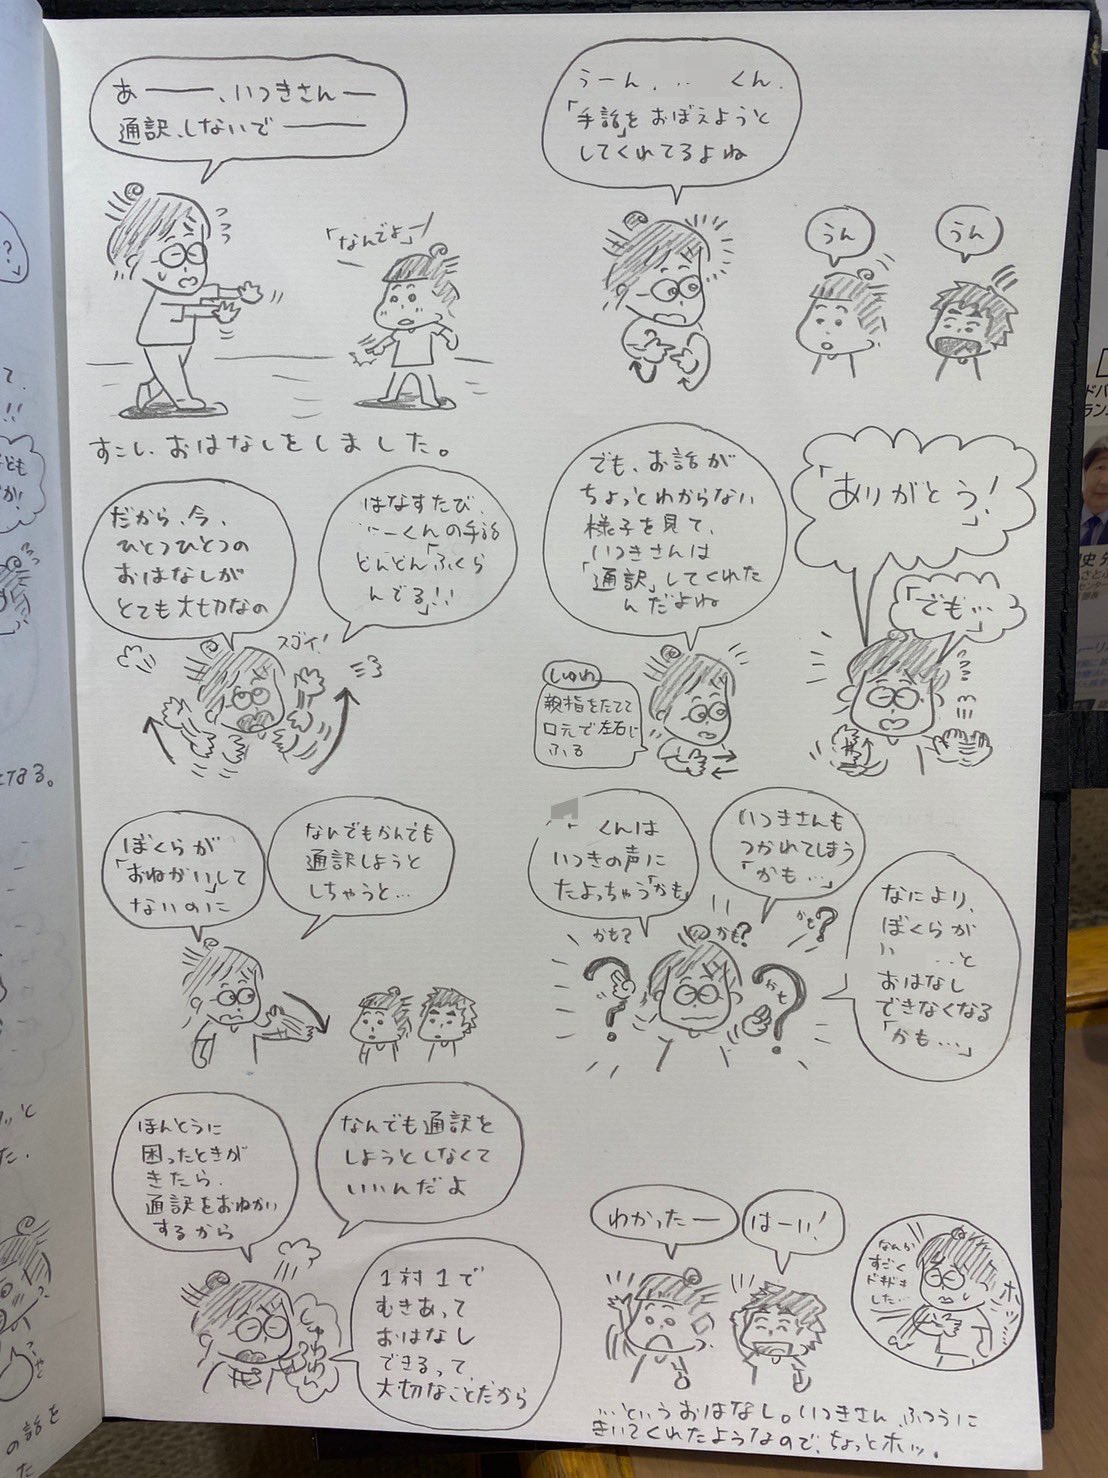 あーーー、いつきさんー
通訳、しないでーーー
「なんでよ」
うーん、‥ くん、
「手話」をおぼえようと
してくれてるよね
うん
うん
すこし、おはなしをしました。
だから、今、
ひとつひとつの
おはなしが
とても大切なの
はなすたび、
ーくんの手話
どんどん「ふくら
んでる」!!
スゴイ!
でも、お話が
ちょっとわからない
様子を見て、
いつきさんは
「通訳」してくれた
んだよね
しゅわ
親指をたてて
口元で左右に
ふる
「ありがとう!」
「でも…」
ぼくらが
「おねがい」して
ないのに
なんでもかんでも
通訳しようと
しちゃうと…
くんは
いつきの声に
たよっちゃう「かも」
いつきさんも
つかれてしまう
「かも…」
かも?
かも?
かも?
かも
なにより、
ぼくらが
…と
おはなし
できなくなる
「かも…」
ほんとうに
困ったときが
きたら、
通訳をおねがい
するから
なんでも通訳を
しようとしなくて
いいんだよ
1対1で
むきあって
おはなし
できるって、
大切なことだから
わかったー
はーい!
なんか
すごく
ドキドキ
した…
ホッ…
…というおはなし。いつきさん、ふつうに
きいてくれたようなので、ちょっとホッ。
となる。
の話を
た